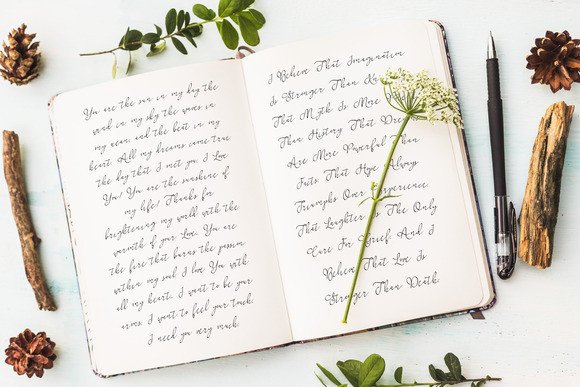 You are the sun in my day the
wind in my sky the waves in
my ocean and the beat in my
heart. All my dreams came true
the day that I met you. I Love
You! You are the sunshine of
my life! Thanks for
brightening my world with the
warmth of your Love. You are
the fire that burns the passion
within my soul. I love You with
all my heart. I want to be your
arms. I want to feel your touch.
I need you very much.
I Believe That Imagination
Is Stronger Than
That Myth Is More
Than History That
Are More Powerful Than
Facts That Hope Always
Triumphs Over Experience
That Laughter Is The Only
Cure For Grief And I
Believe That Love Is
Stronger Than Death.